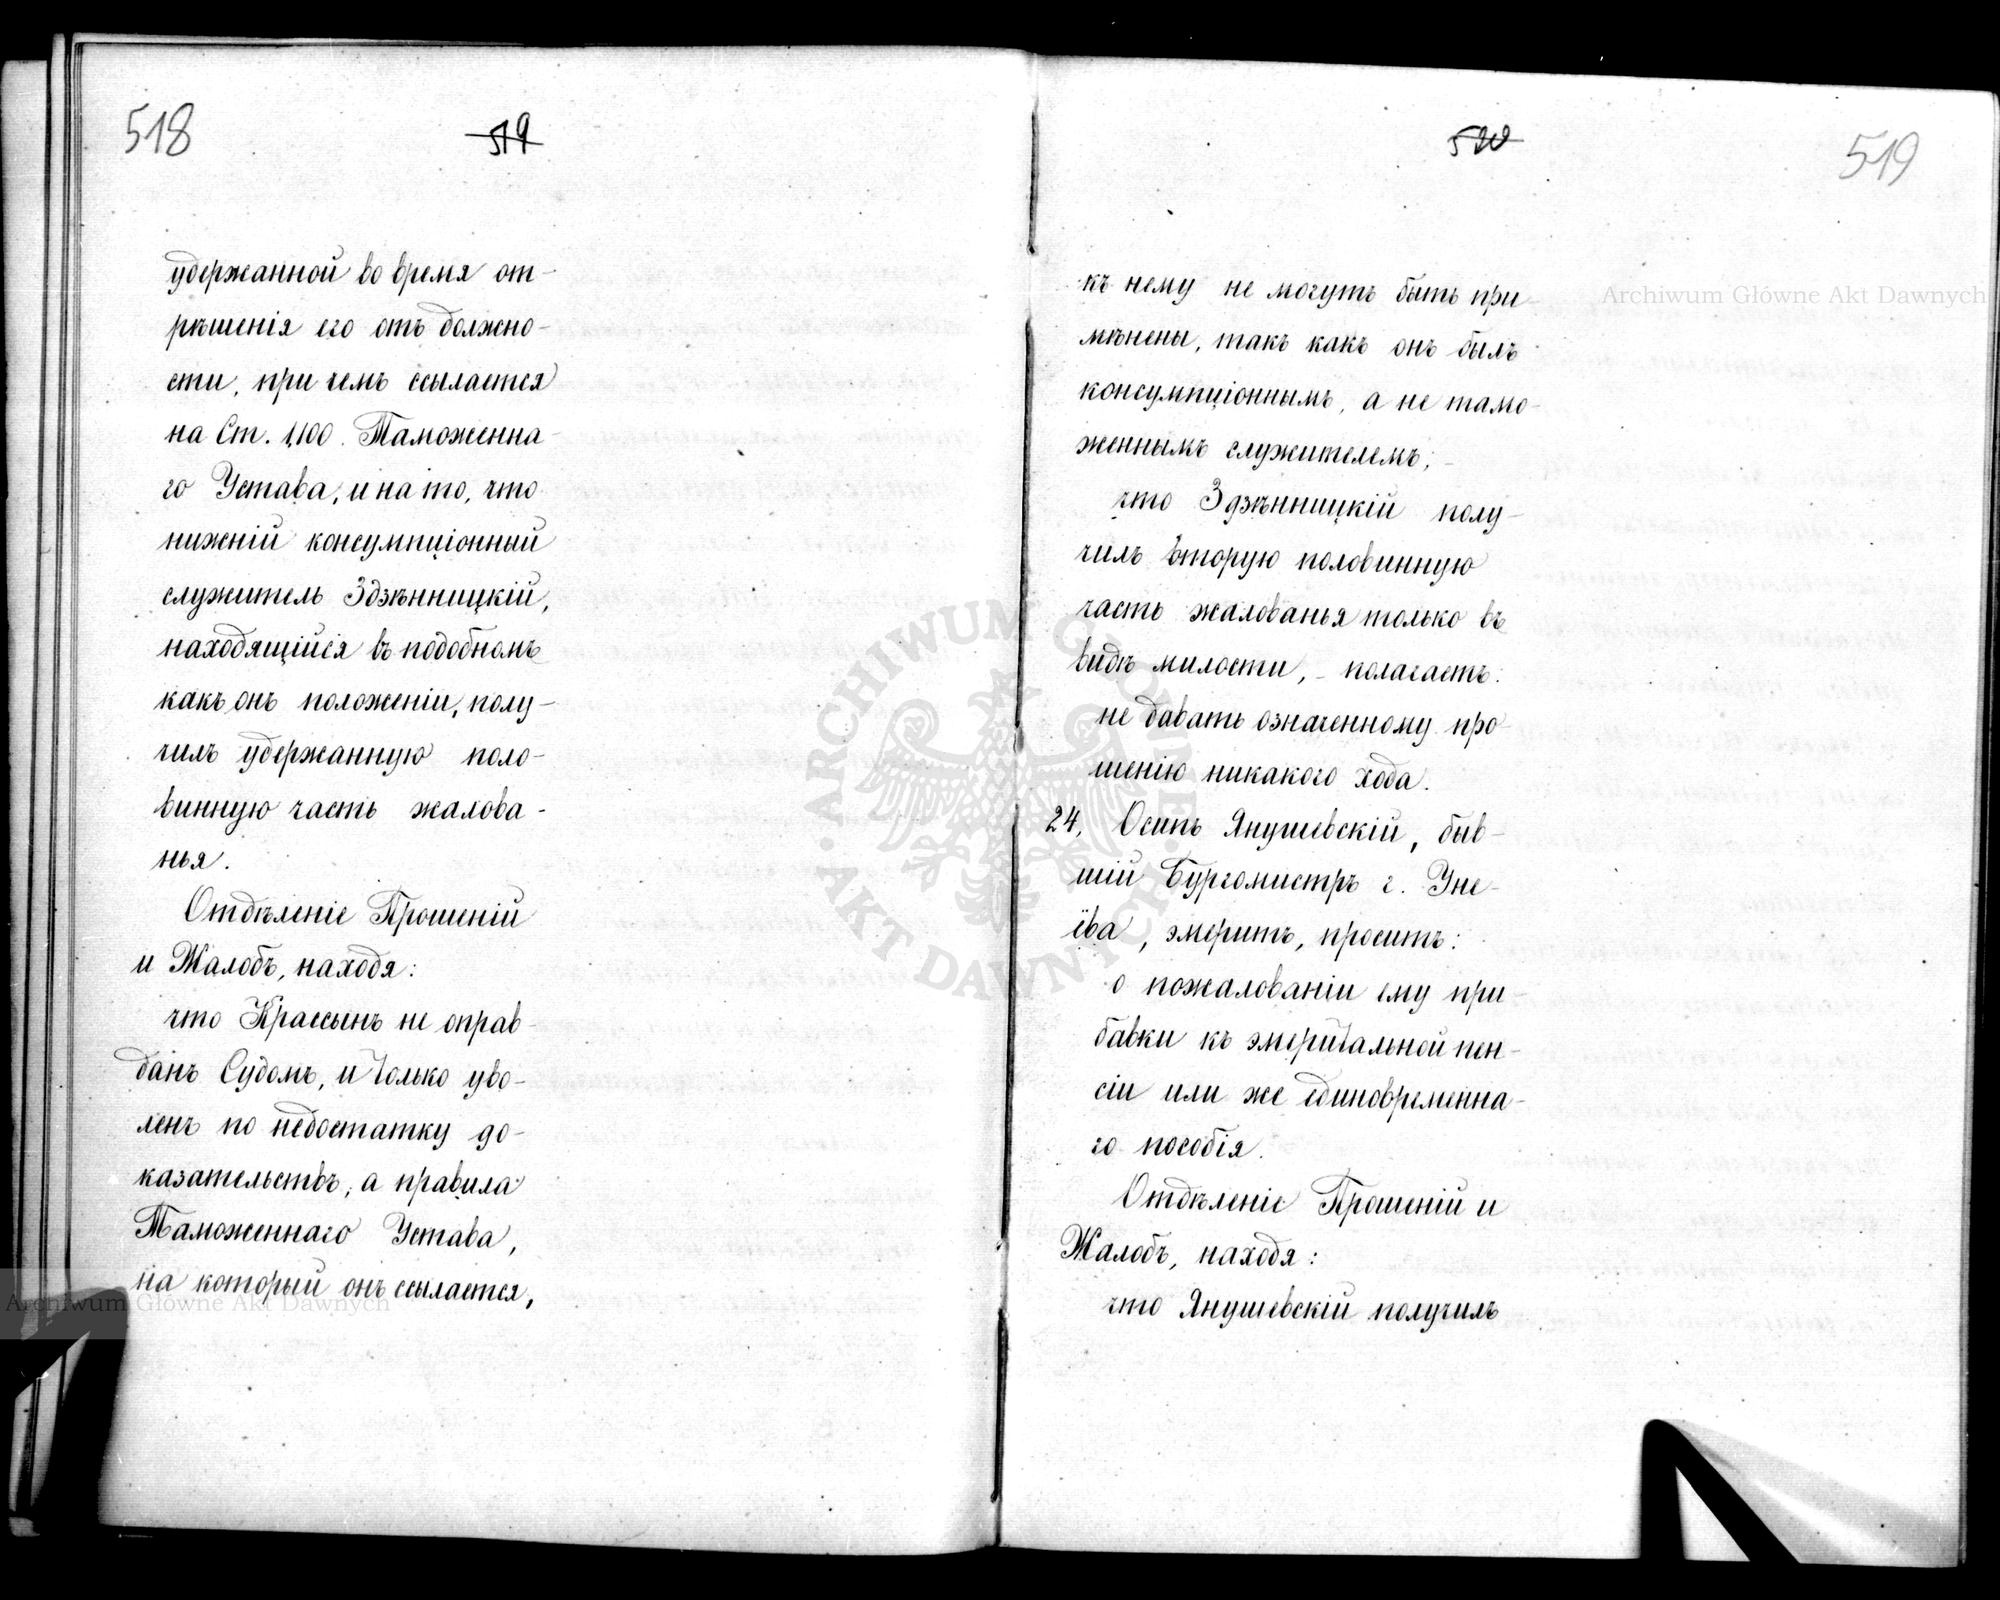 518
519
удержанной во время от-
рѣшенія его отъ должно-
сти, при чемъ ссылается
на Ст. 1,100. Таможенна-
го Устава, и на то, что
нижній консумпціонный
служитель Здзѣнницкій,
находящійся въ подобномъ
какъ онъ положеніи, полу-
чилъ удержанную поло-
винную часть жалова-
нья.
Отдѣленіе Прошеній
и Жалобъ, находя:
что Крассынъ не оправ-
данъ Судомъ, и только уво-
ленъ по недостатку до-
казательствъ, а правила
Таможеннаго Устава,
на который онъ ссылается,
520
519
къ нему не могутъ быть при-
мѣнены, такъ какъ онъ былъ
консумпціоннымъ, а не тамо-
женнымъ служителемъ;
что Здзѣнницкій полу-
чилъ вторую половинную
часть жалованья только въ
видѣ милости, - полагаетъ:
не давать означенному про-
шенію никакого хода.
24, Осипъ Янушевскій, быв-
шій Бургомистръ г. Уне-
ева, эмеритъ, проситъ:
о пожалованіи ему при-
бавки къ эмеритальной пен-
сіи или же единовременна-
го пособія.
Отдѣленіе Прошеній и
Жалобъ, находя:
что Янушевскій получилъ
Archiwum Główne Akt Dawnych
Archiwum Główne Akt Dawnych
ARCHIWUM GŁÓWNE
AKT DAWNYCH